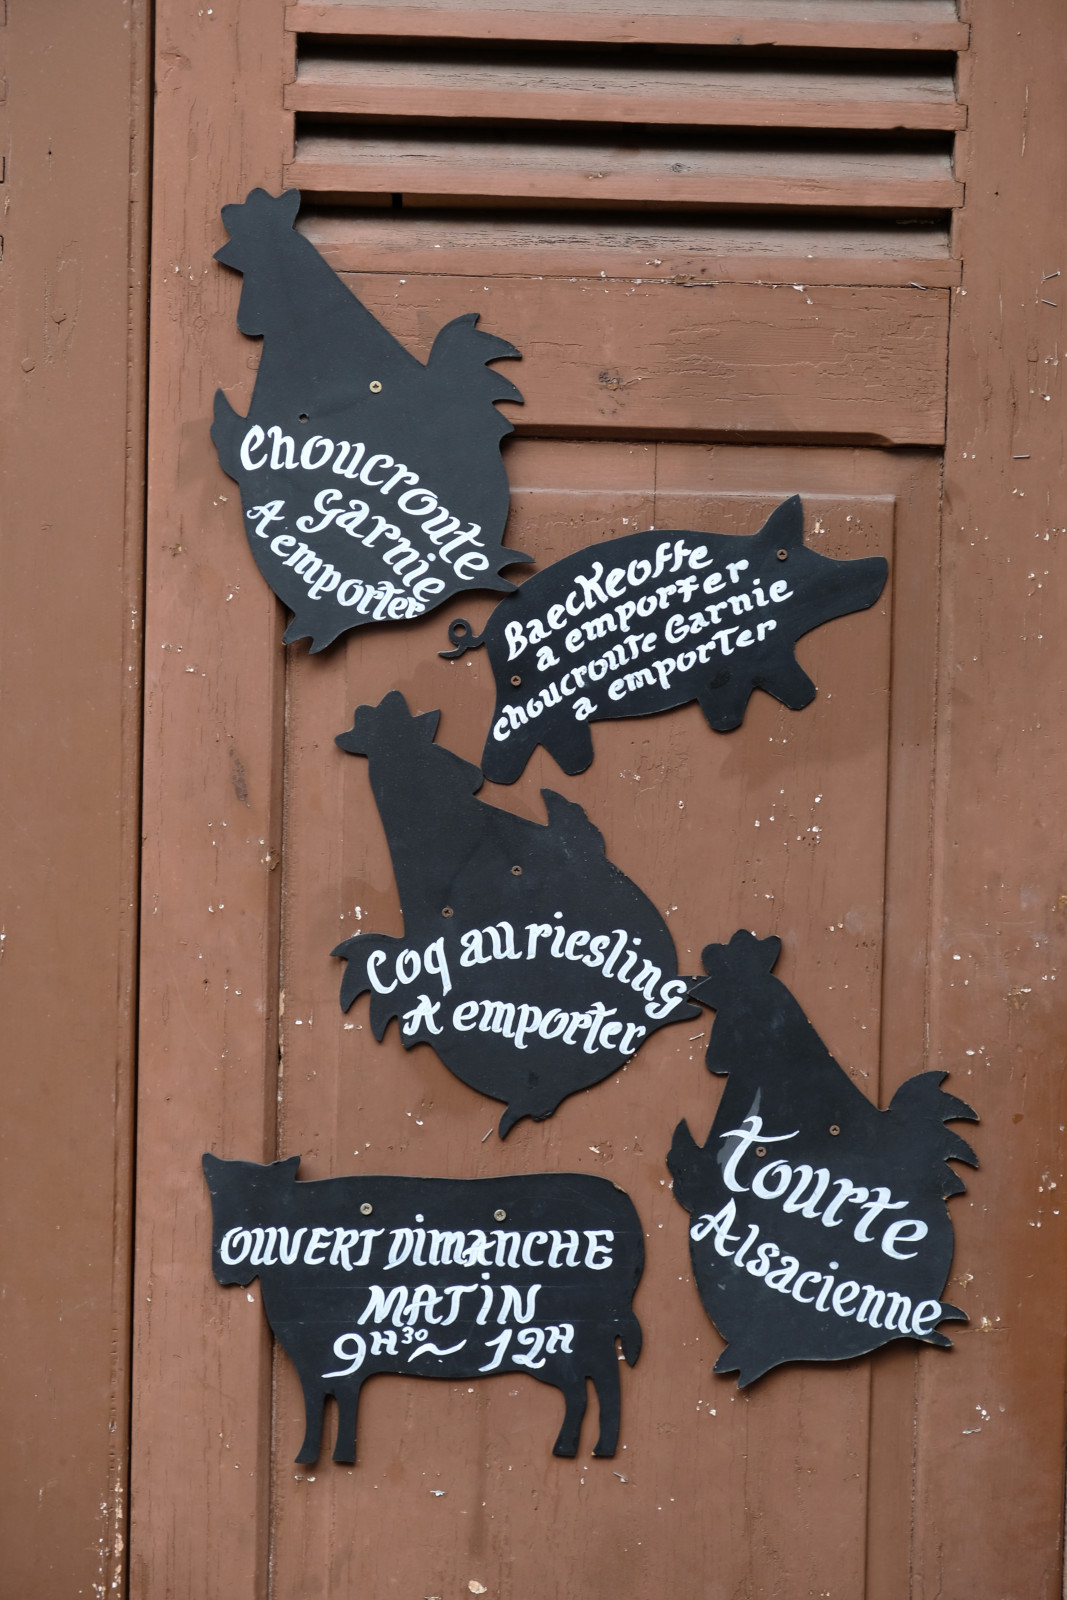 Choucroute
Garnie
A emporter
Baeckeoffe
a emporter
choucroute Garnie
a emporter
Coq au riesling
A emporter
Tourte
Alsacienne
OUVERT DIMANCHE
MATIN
9H30 ~ 12H